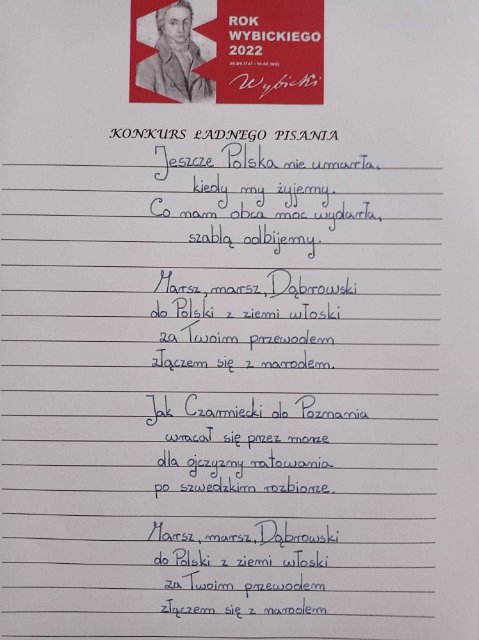 ROK
WYBICKIEGO
2022
Wybicki
KONKURS ŁADNEGO PISANIA
Jeszcze Polska nie umarła,
kiedy my żyjemy.
Co nam obca moc wydarła,
szablą odbijemy.
Marsz, marsz, Dąbrowski
do Polski z ziemi włoski
za Twoim przewodem
złączem się z narodem.
Jak Czarniecki do Poznania
wracał się przez morze
dla ojczyzny ratowania
po szwedzkim rozbiorze.
Marsz, marsz, Dąbrowski
do Polski z ziemi włoski
za Twoim przewodem
złączem się z narodem